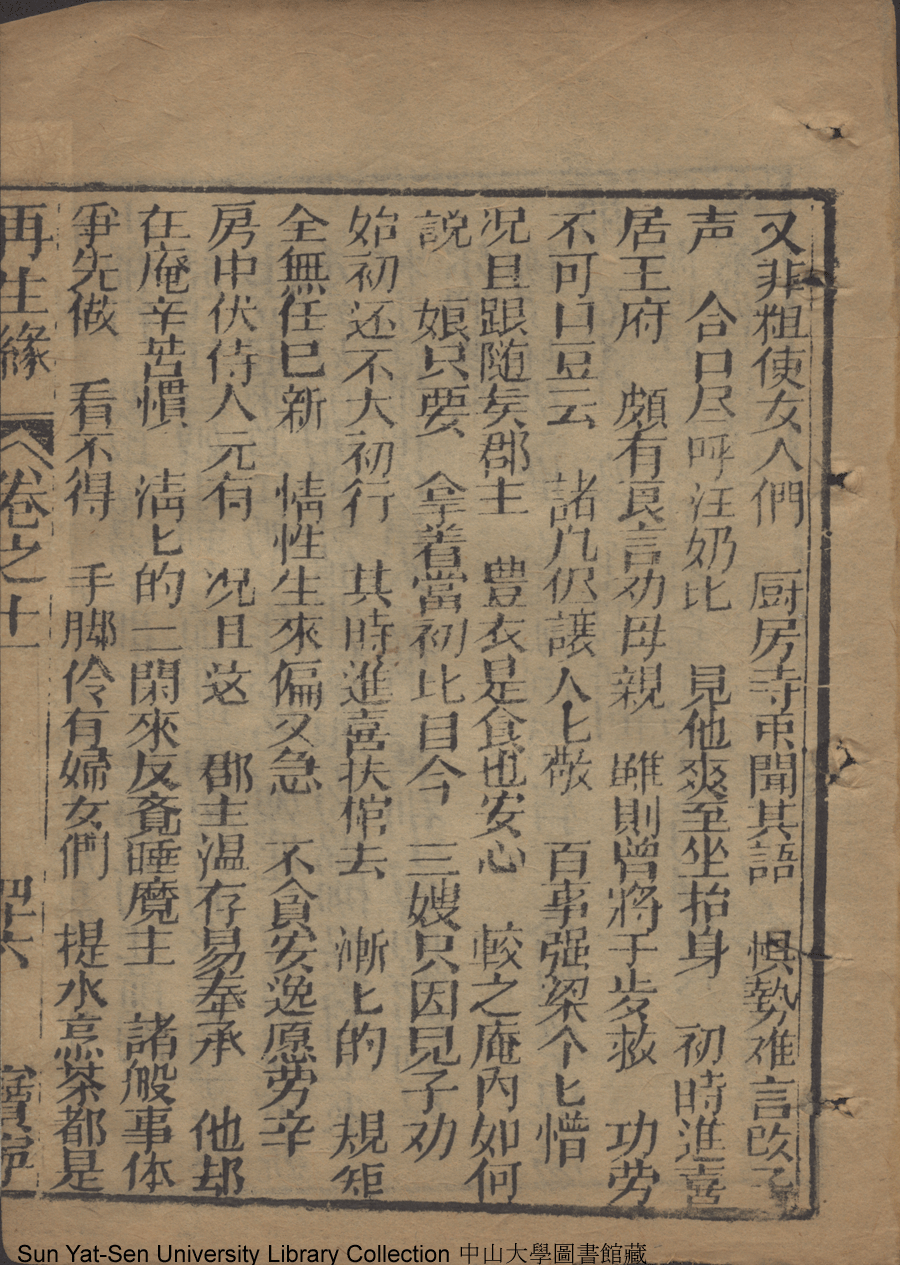 又非粗使女人們　厨房寺中聞其語　惧勢难言改子
声　合口尽呼汪奶匕　見他爽至坐抬身　初時進喜
居王府　頗有良言劝母親　雖則曾將于步救　功劳
不可口豆云　諸凢伬讓人匕敬　百事强梁个匕憎
况且跟随矣郡主　豊衣是食也安心　較之庵內如何
説　娘只要　拿着當初比目今　三嫂只因見子劝
始初还不大初行　其時進喜扶棺去　漸匕的　規矩
全無任已新　情性生來偏又急　不貪安逸愿劳辛
房中伏侍人元有　况且这　郡主温存易奉承　他却
在庵辛苦慣　淸匕的　閑來反覔睡魔主　諸般事体
爭先做　看不得　手脚伶有婦女們　提水烹茶都是
再生緣　卷之十一　四十六　寳寧
Sun Yat-Sen University Library Collection 中山大學圖書館藏